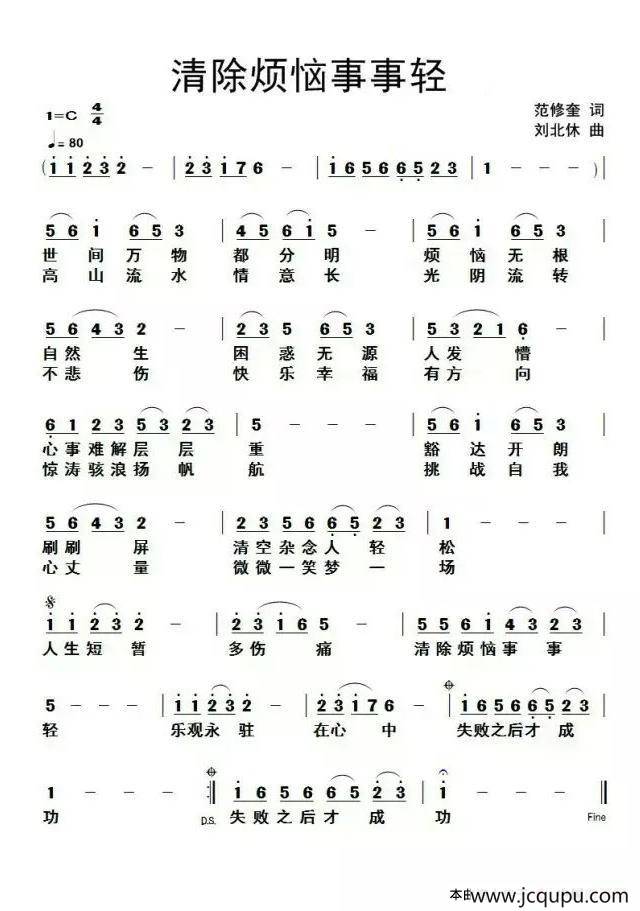 清除烦恼事事轻
1=C 4/4
范修奎 词
♩=80
刘北休 曲
(1 1 2 3 2 - | 2 3 1 7 6 - | 1 6 5 6 6 5 2 3 | 1 - - -)|
5 6 1 6 5 3 | 4 5 6 1 5 - | 5 6 1 6 5 3 |
世间万物 都分明 烦恼无根
高山流水 情意长 光阴流转
5 6 4 3 2 - | 2 3 5 6 5 3 | 5 3 2 1 6 - |
自然生 困惑无源 人发懵
不悲伤 快乐幸福 有方向
6 1 2 3 5 3 2 3 | 5 - - - | 5 6 1 6 5 3 |
心事难解层层 重 豁达开朗
惊涛骇浪扬帆 航 挑战自我
5 6 4 3 2 - | 2 3 5 6 6 5 2 3 | 1 - - - |
刷刷屏 清空杂念人轻 松
心丈量 微微一笑梦一 场
1 1 2 3 2 - | 2 3 5 3 - | 5 5 6 1 4 3 2 3 |
人生短暂 多伤痛 清除烦恼事事
5 - - - | 1 1 2 3 2 - | 2 3 1 7 6 - | 1 6 5 6 6 5 2 3 |
轻 乐观永驻 在心中 失败之后才成
1 - - - :| 1 6 5 6 6 5 2 3 | 1 - - - ‖
功 D.S. 失败之后才成 功 Fine
本曲www.jcqupu.com